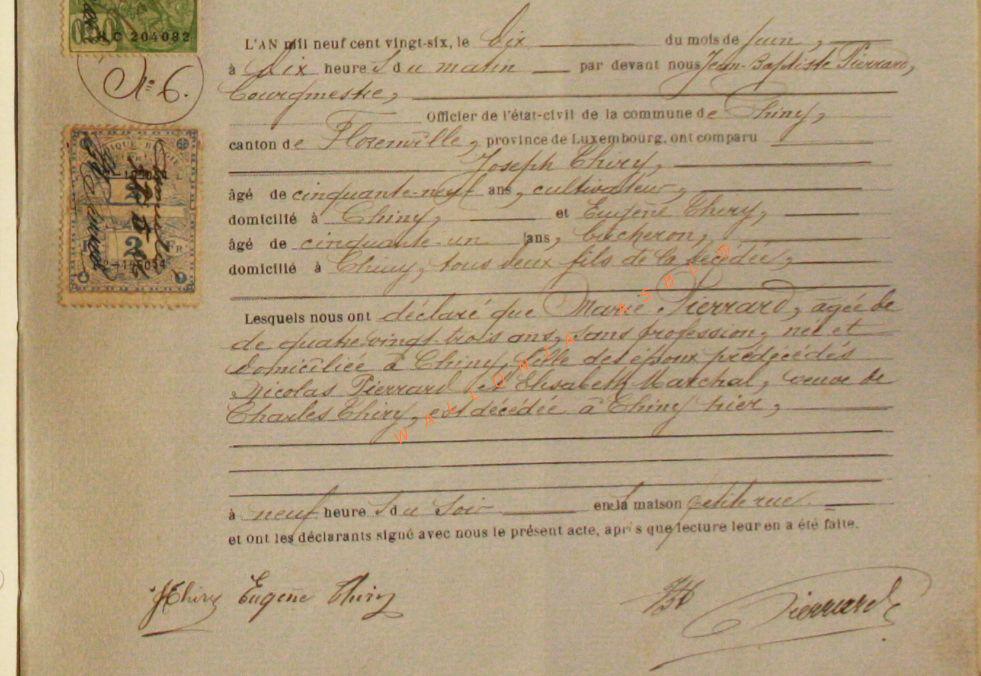 HC 204082
N° 6.
L'AN mil neuf cent vingt-six, le Dix du mois de Juin,
à Dix heure s du matin par devant nous Jean-Baptiste Pierrard,
Bourgmestre,
Officier de l'état-civil de la commune de Chiny,
canton de Florenville, province de Luxembourg, ont comparu
Joseph Thiry,
âgé de cinquante-neuf ans, cultivateur,
domicilié à Chiny, et Eugène Thiry,
âgé de cinquante-un ans, bûcheron,
domicilié à Chiny, tous deux fils de la décédée,
Lesquels nous ont déclaré que Marie Pierrard, agée de
de quatre vingt trois ans, sans profession, née et
domiciliée à Chiny, fille des époux prédécédés
Nicolas Pierrard et Elisabeth Marchal, veuve de
Charles Thiry, est décédée à Chiny hier,
à neuf heure s du soir en la maison petite rue.
et ont les déclarants signé avec nous le présent acte, après que lecture leur en a été faite.
J Thiry Eugène Thiry JB Pierrard